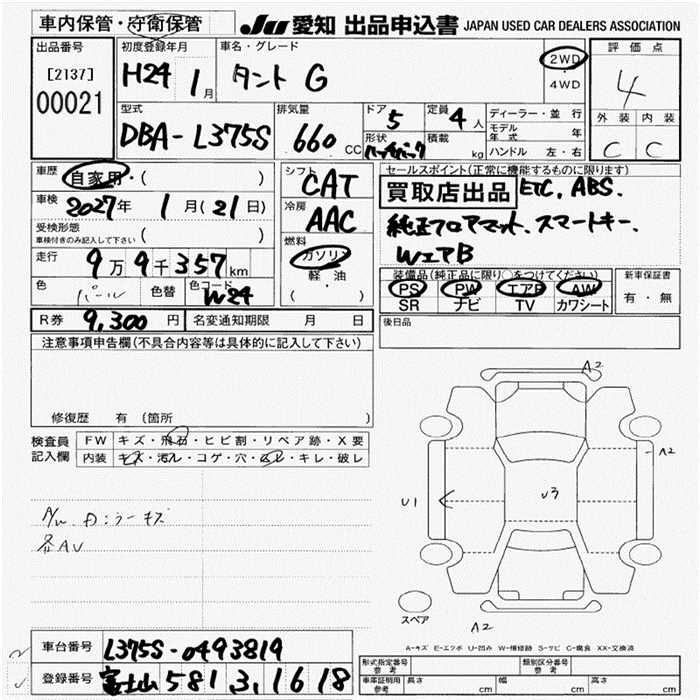 車内保管・守衛保管
JU 愛知 出品申込書 JAPAN USED CAR DEALERS ASSOCIATION
出品番号
[2137]
00021
初度登録年月
H24 1月
車名・グレード
タント G
2WD
・
4WD
評価点
4
外装 内装
C C
型式
DBA-L375S
排気量
660 CC
ドア 5
定員 4人
形状 ハッチバック
積載 kg
ディーラー・並行
モデル年式 年
ハンドル 左・右
車歴 自家用・( )
車検 2027年 1月(21日)
受検形態
車検付きのみ記入して下さい ( )
走行 9万9千357km
色 パール 色替 色コード W24
シフト CAT
冷房 AAC
燃料
ガソリン
・
軽油
( )
セールスポイント(正常に機能するものに限ります)
買取店出品 ETC, ABS.
純正フロアマット、スマートキー、
WエアB
装備品(純品に限り○をつけてください)
PS PW エアB AW
SR ナビ TV カワシート
新車保証書
有・無
R券 9,300円 名変通知期限 月 日
後日品
注意事項申告欄(不具合内容等は具体的に記入して下さい)
修復歴 有(箇所 )
検査員
記入欄
FW キズ・飛石・ヒビ割・リペア跡・X要
内装 キズ・汚れ・コゲ・穴・ムレ・キレ・破レ
各AV
A2
A2
U1
U3
A2
スペア
A-キズ E-エクボ U-凹み W-補修跡 S-サビ C-腐食 XX-交換済
車台番号 L375S-0493819
登録番号 富士山 581 3 1618
形式指定番号
参考
類別区分番号
参考
車庫証明用
参考
長さ cm 幅 cm 高さ cm